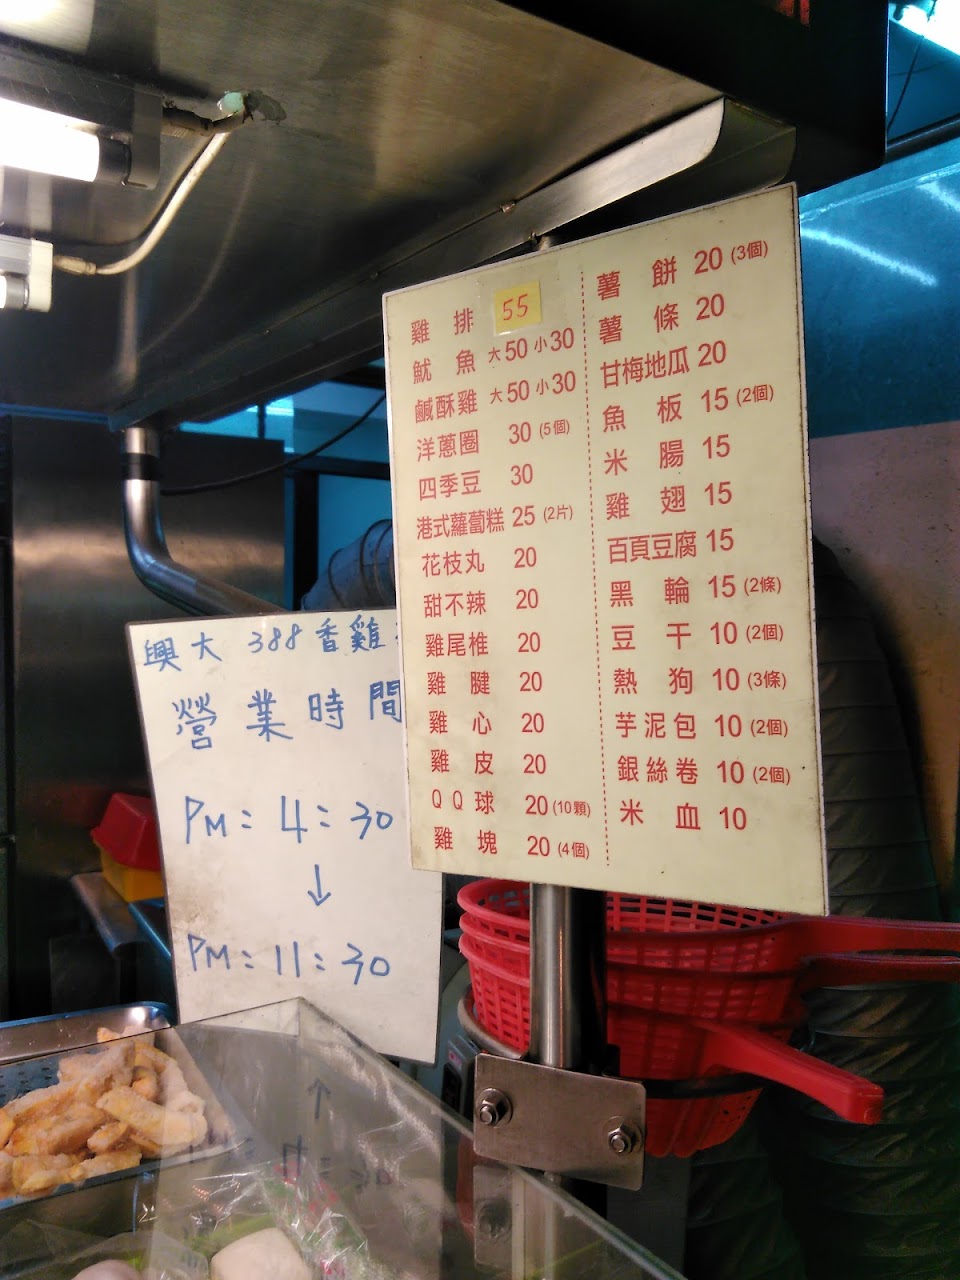 雞排 55
魷魚 大50 小30
鹹酥雞 大50 小30
洋蔥圈 30 (5個)
四季豆 30
港式蘿蔔糕 25 (2片)
花枝丸 20
甜不辣 20
雞尾椎 20
雞腱 20
雞心 20
雞皮 20
QQ球 20 (10顆)
雞塊 20 (4個)
薯餅 20 (3個)
薯條 20
甘梅地瓜 20
魚板 15 (2個)
米腸 15
雞翅 15
百頁豆腐 15
黑輪 15 (2條)
豆干 10 (2個)
熱狗 10 (3條)
芋泥包 10 (2個)
銀絲卷 10 (2個)
米血 10
興大 388香雞
營業時間
PM:4:30
↓
PM:11:30